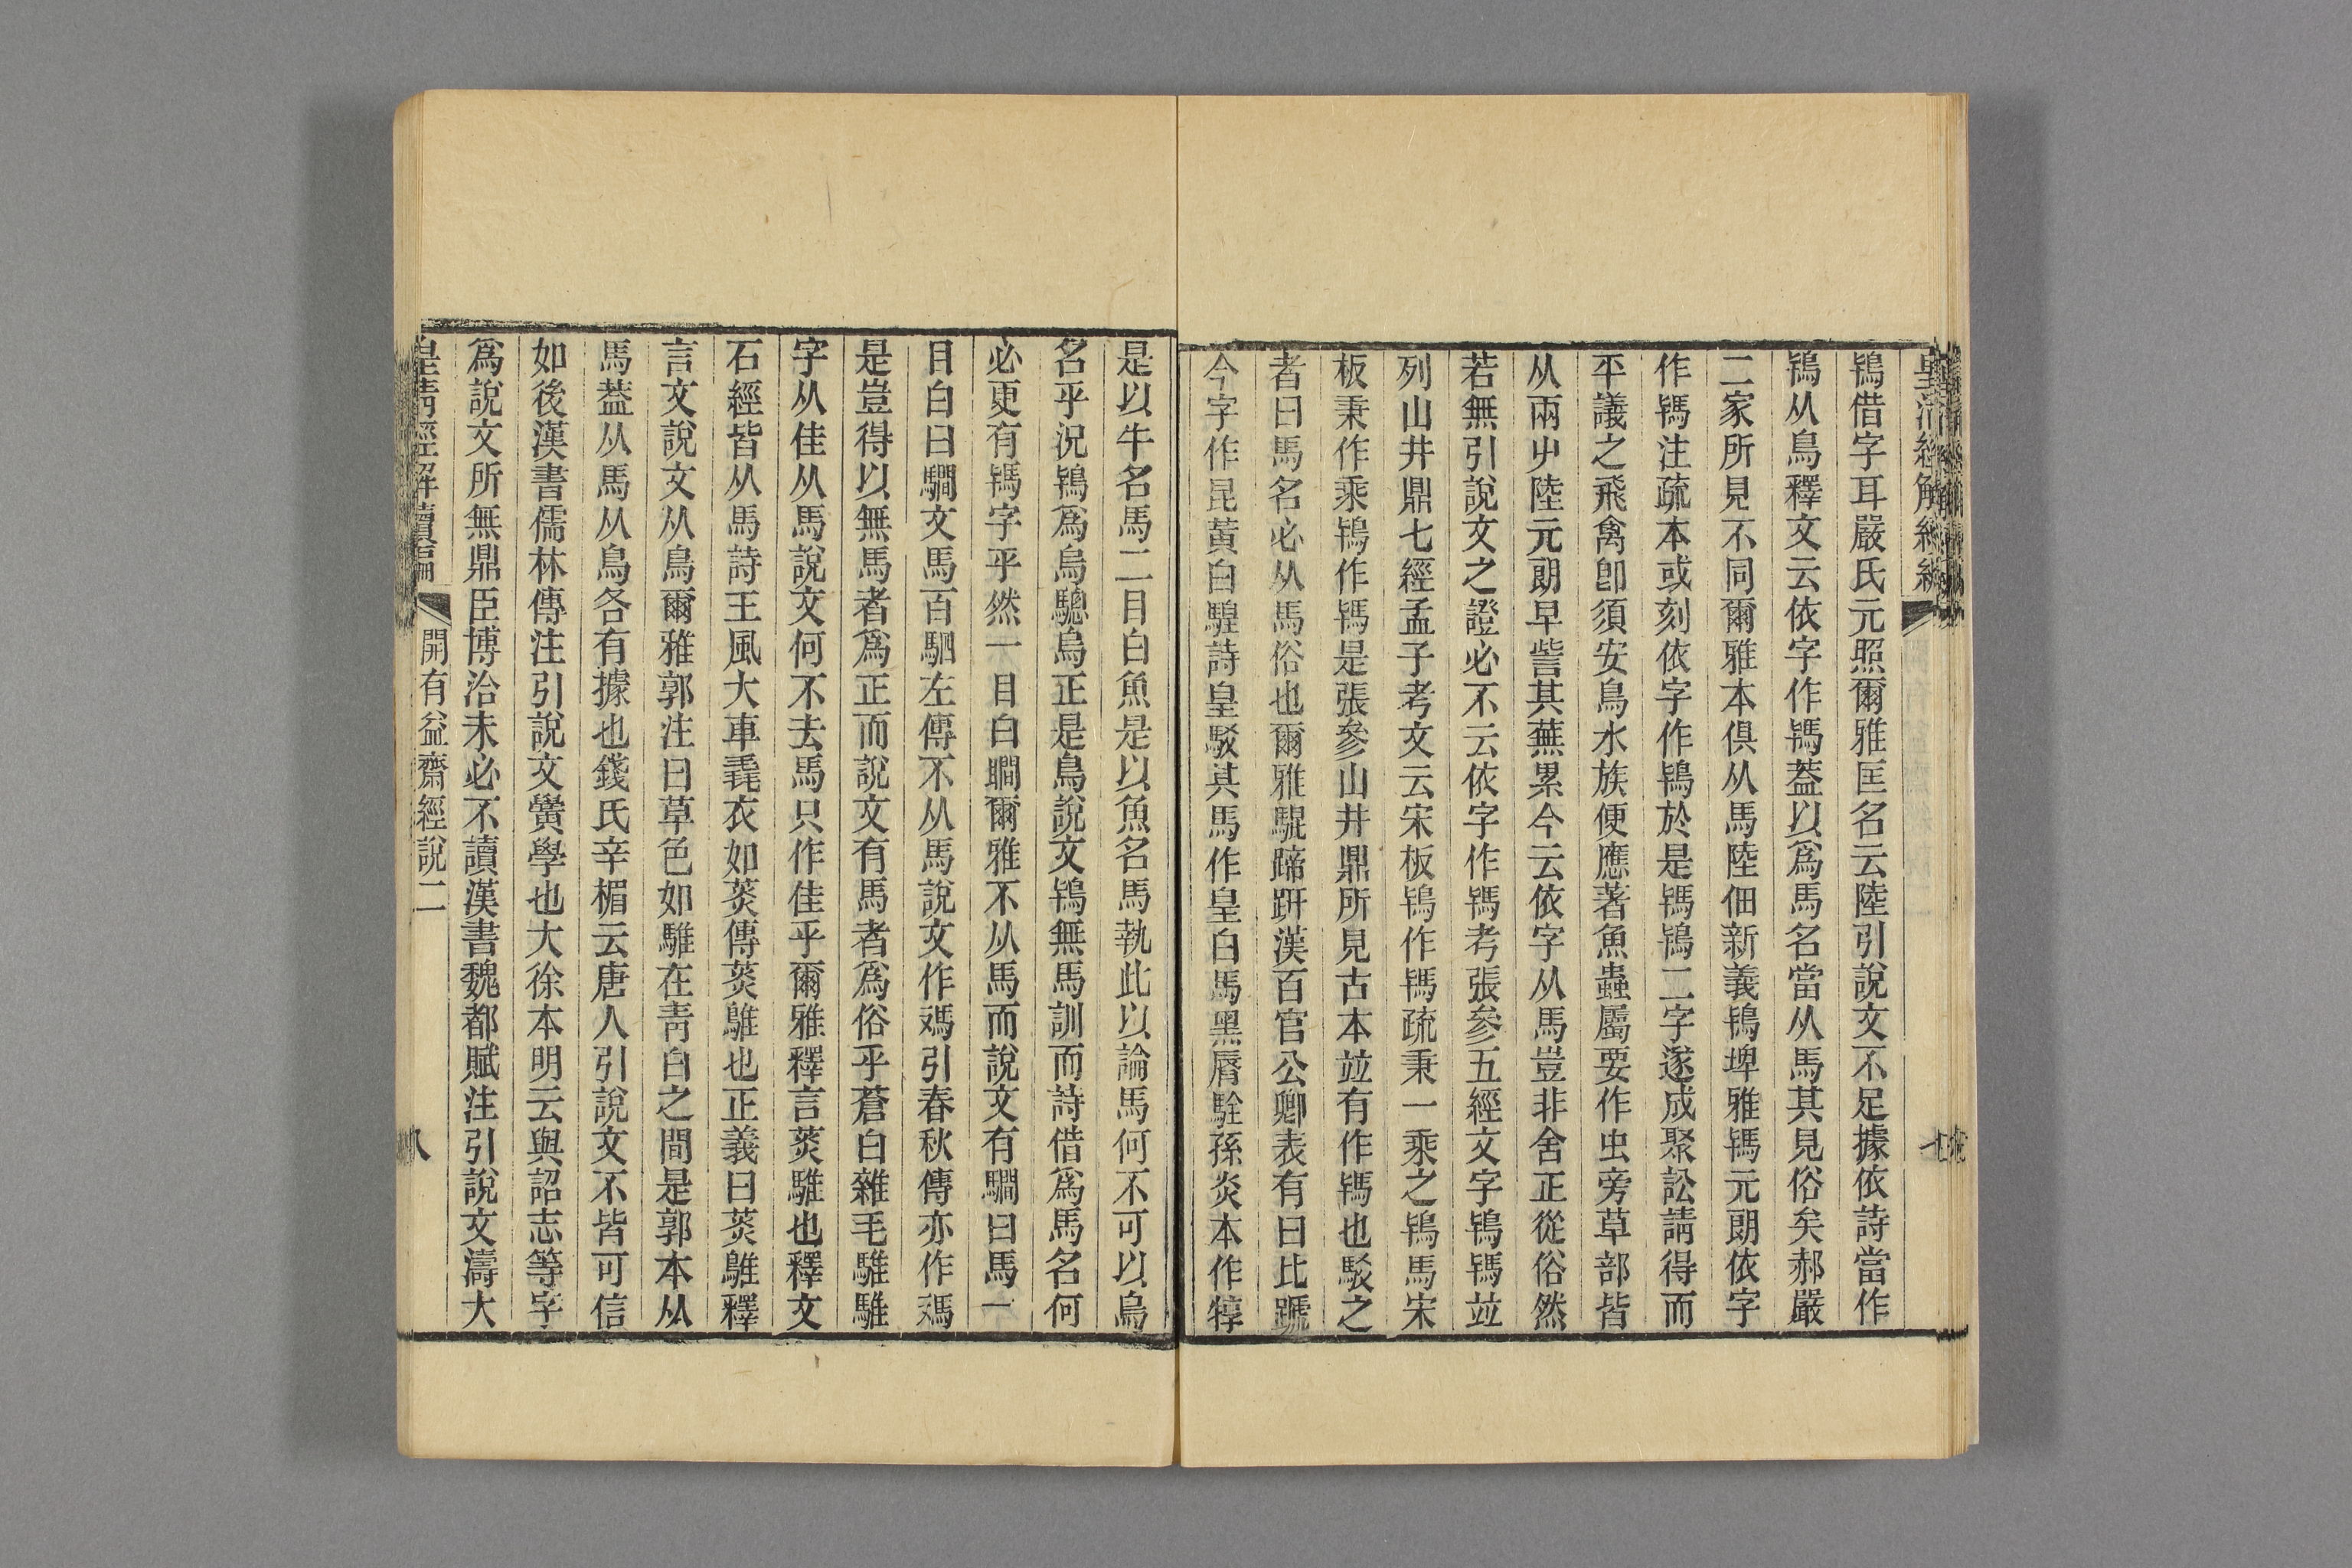 皇清經解續編
七
鴇借字耳嚴氏元照爾雅匡名云陸引說文不足據依詩當作
鴇从鳥釋文云依字作䮀蓋以爲馬名當从馬其見俗矣郝嚴
二家所見不同爾雅本俱从馬陸佃新義鴇埤雅䮀元朗依字
作䮀注疏本或刻依字作鴇於是䮀鴇二字遂成聚訟請得而
平議之飛禽卽須安鳥水族便應著魚蟲屬要作虫旁草部皆
从兩屮陸元朗早訾其蕪累今云依字从馬豈非舍正從俗然
若無引說文之證必不云依字作䮀考張參五經文字鴇䮀竝
列山井鼎七經孟子考文云宋板鴇作䮀疏秉一乘之鴇馬宋
板秉作乘鴇作䮀是張參山井鼎所見古本竝有作䮀也駁之
者曰馬名必从馬俗也爾雅騉蹄趼漢百官公卿表有曰比蹏
今字作昆黃白騜詩皇駁其馬作皇白馬黑脣駩孫炎本作犉
是以牛名馬二目白魚是以魚名馬執此以論馬何不可以鳥
名乎況鴇爲烏驄烏正是鳥說文鴇無馬訓而詩借爲馬名何
必更有䮀字乎然一目白瞷爾雅不从馬而說文有騆曰馬一
目白曰騆文馬百駟左傳不从馬說文作䭸引春秋傳亦作䭸
是豈得以無馬者爲正而說文有馬者爲俗乎蒼白雜毛騅騅
字从隹从馬說文何不去馬只作隹乎爾雅釋言菼騅也釋文
石經皆从馬詩王風大車毳衣如菼傳菼鵻也正義曰菼鵻釋
言文說文从鳥爾雅郭注曰草色如騅在青白之間是郭本从
馬蓋从馬从鳥各有據也錢氏辛楣云唐人引說文不皆可信
如後漢書儒林傳注引說文黌學也大徐本明云與詔志等字
爲說文所無鼎臣博洽未必不讀漢書魏都賦注引說文濤大
皇清經解續編
開有益齋經說二
八